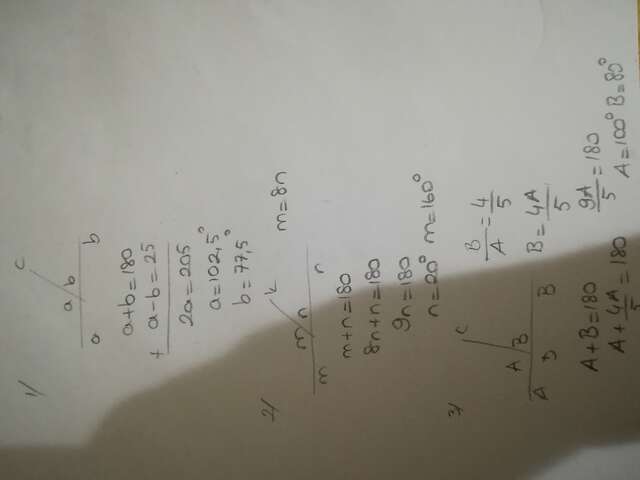 1/
c
a b
a b
a+b=180
+ a-b=25
2a=205
a=102,5°
b=77,5°
2/
k
m n m=8n
m n
m+n=180
8n+n=180
9n=180
n=20° m=160°
3/
c
A B B/A=4/5
A D B B=4A/5
A+B=180 9A/5=180
A+4A/5=180 A=100° B=80°